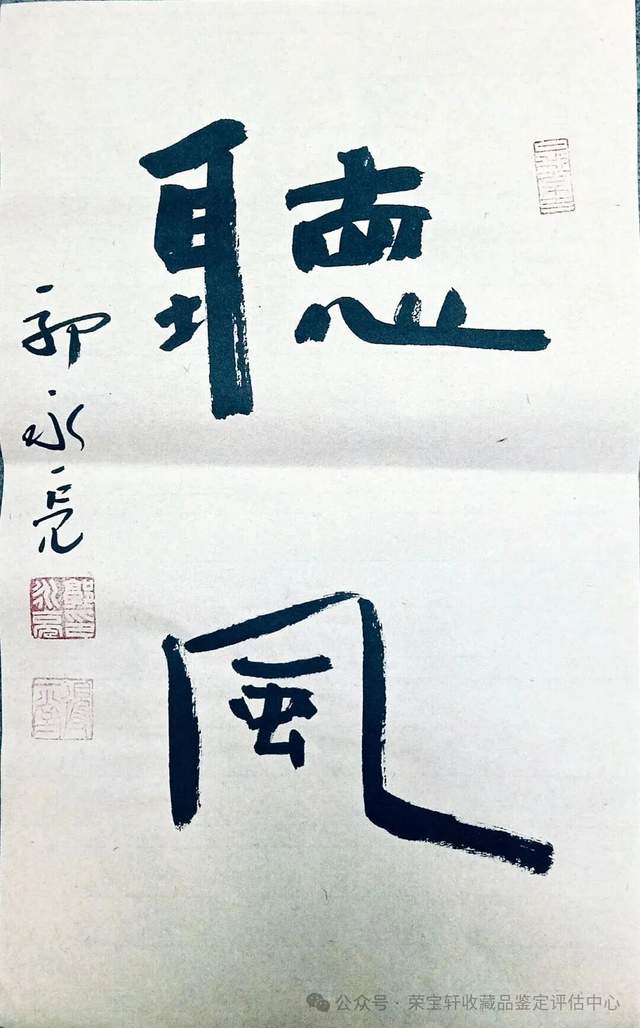 聽
風
郭永亮
公众号·荣宝轩收藏品鉴定评估中心